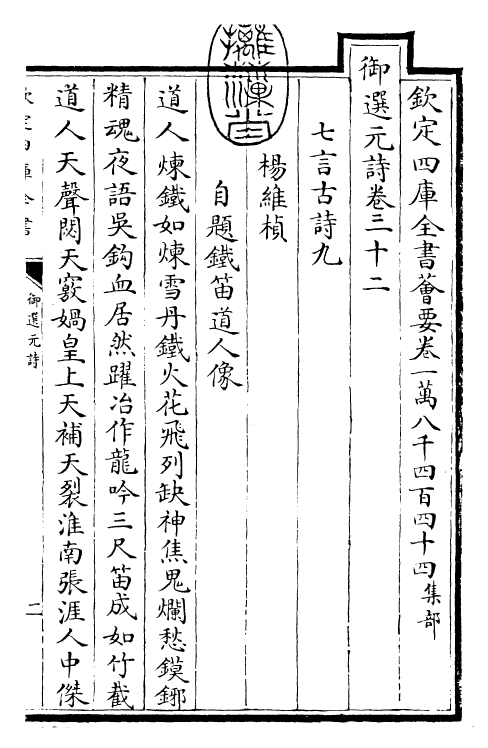 欽定四庫全書薈要卷一萬八千四百四十四集部
御選元詩卷三十二
七言古詩九
楊維楨
自題鐵笛道人像
道人煉鐵如煉雪丹鐵火花飛列缺神焦鬼爛愁鏌鎁
精魂夜語吳鈎血居然躍冶作龍吟三尺笛成如竹截
道人天聲閟天竅媧皇上天補天裂淮南張涯人中傑
欽定四庫全書
御選元詩
二